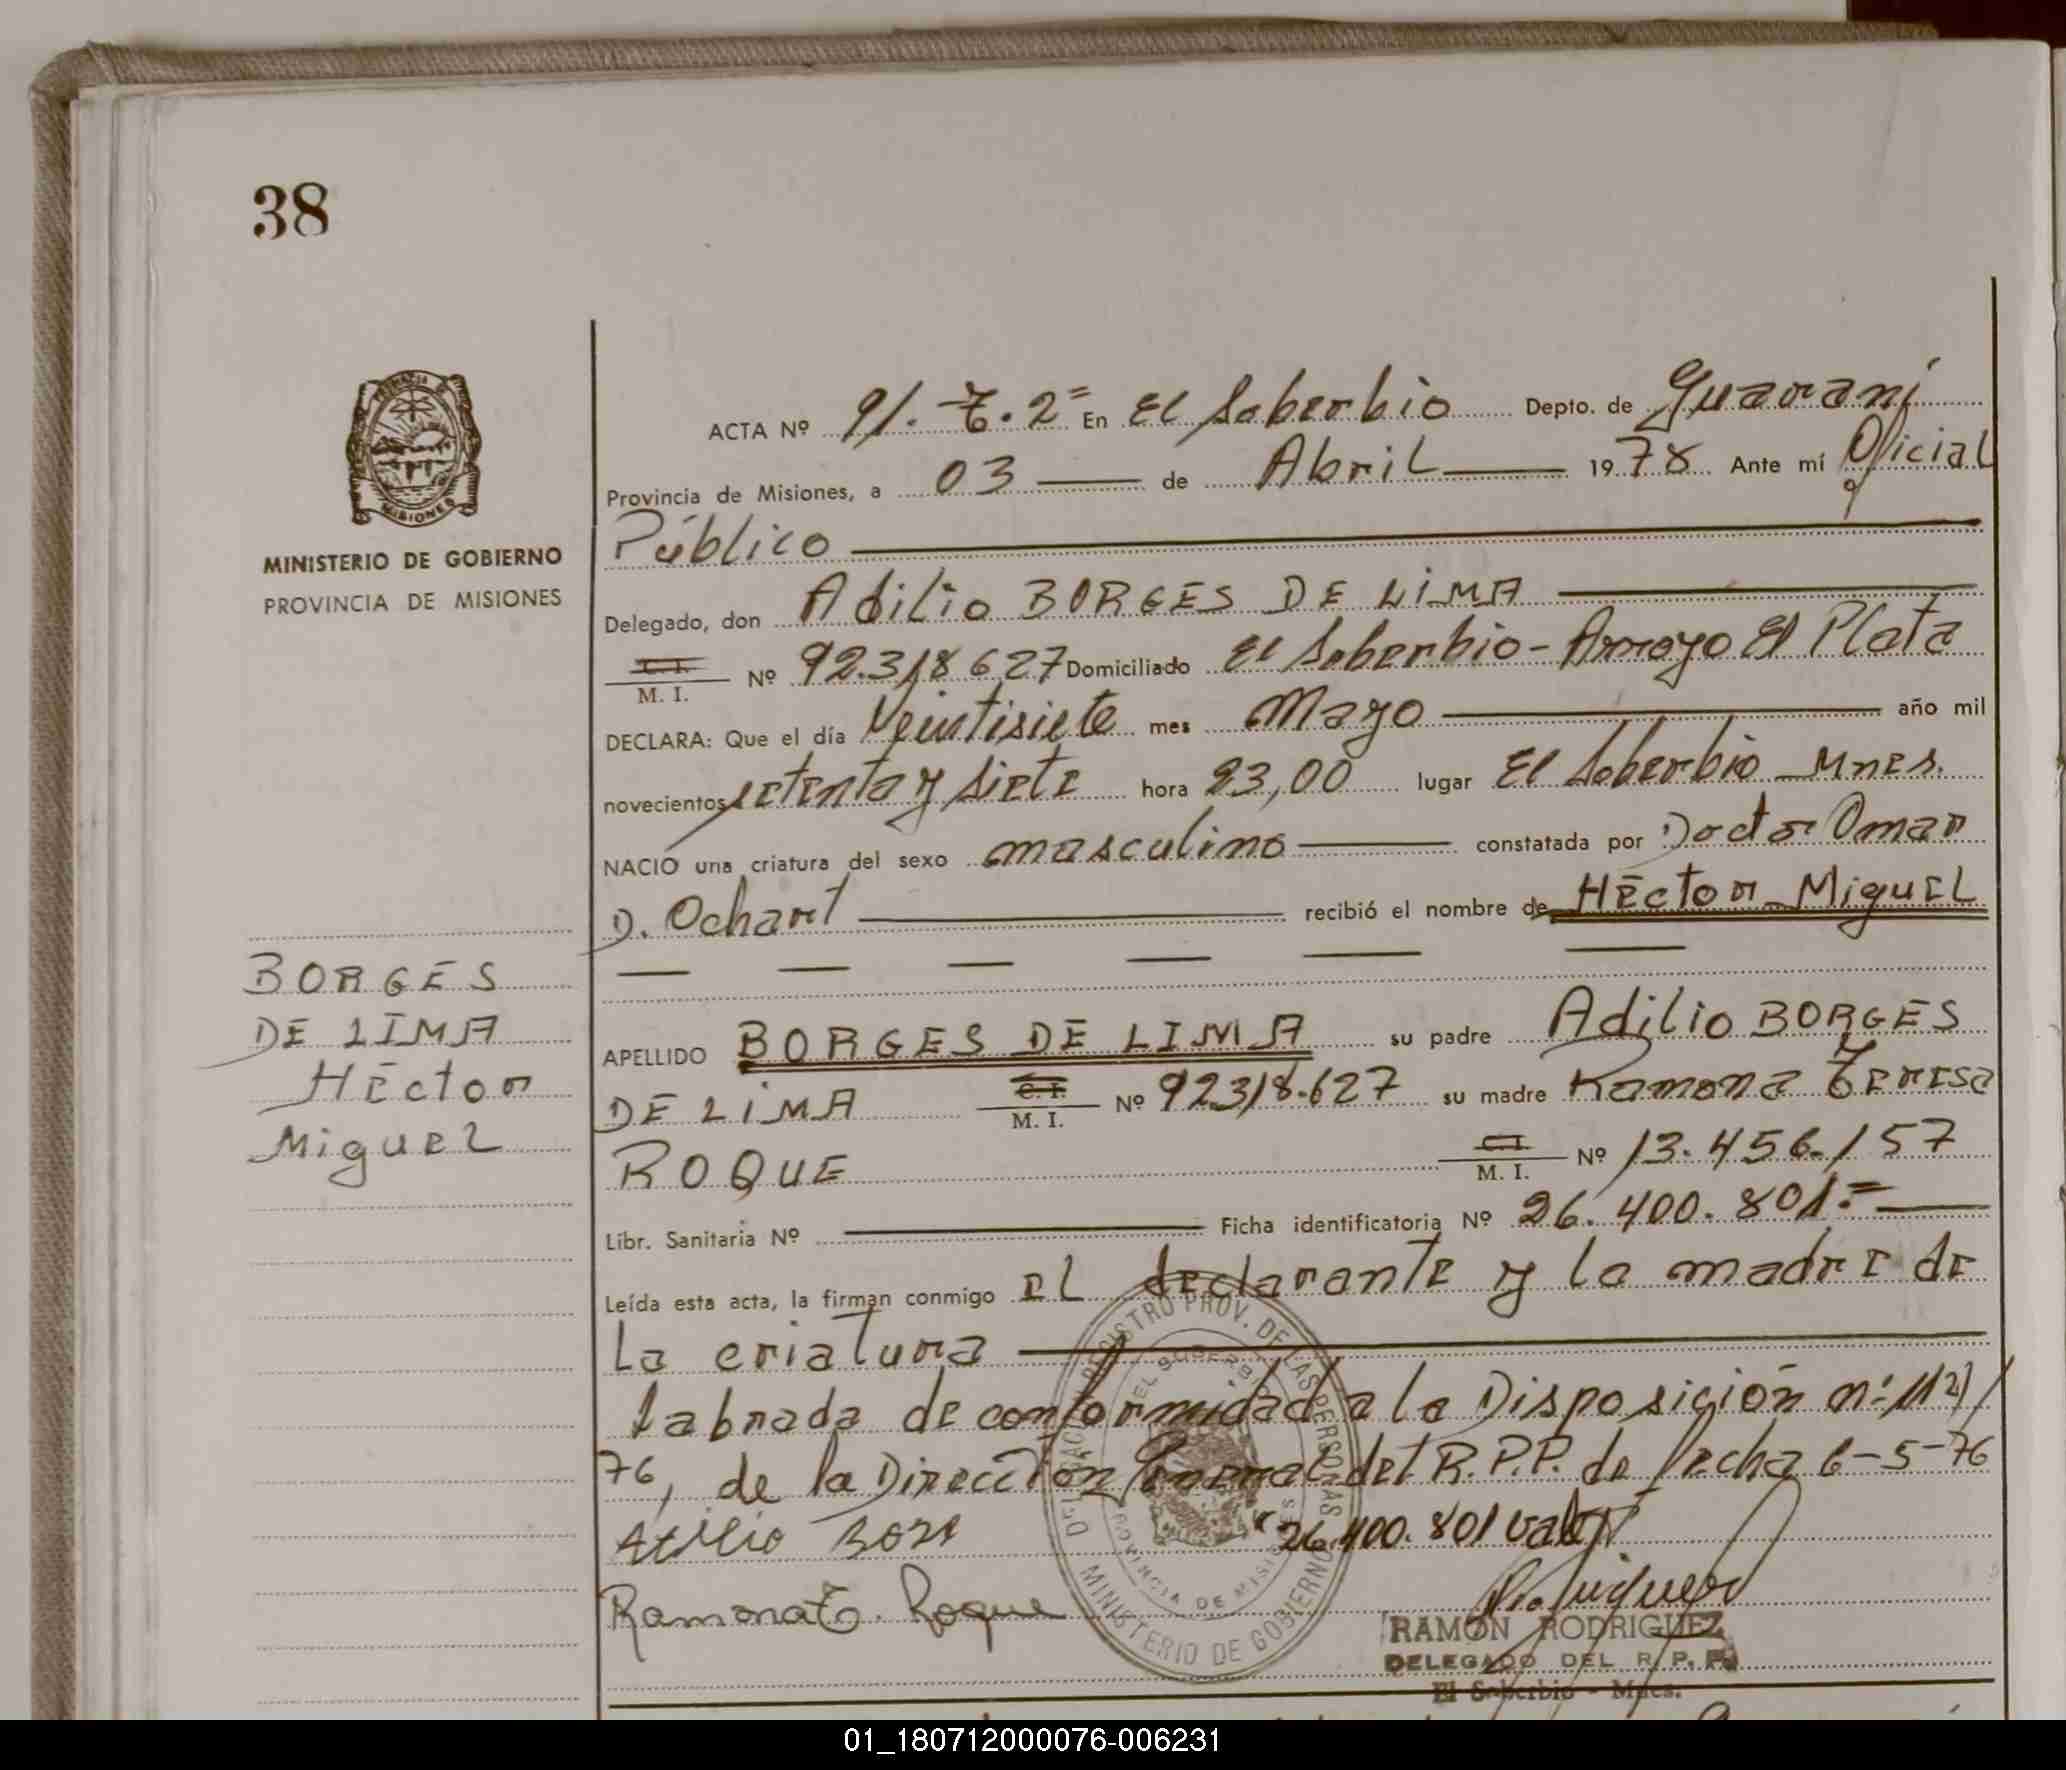 38
MINISTERIO DE GOBIERNO
PROVINCIA DE MISIONES
BORGES
DE LIMA
Héctor
Miguel
ACTA Nº 91. T. 2º En El Soberbio Depto. de Guaraní
Provincia de Misiones, a 03 de Abril 1978 Ante mí Oficial
Público
Delegado, don Adilio BORGES DE LIMA
C. I. / M. I. Nº 92.318627 Domiciliado El Soberbio - Arroyo El Plata
DECLARA: Que el día Veintisiete mes Mayo año mil
novecientos setenta y siete hora 23,00 lugar El Soberbio Mnes.
NACIO una criatura del sexo masculino constatada por Doctor Omar
D. Ochart recibió el nombre de Héctor Miguel
APELLIDO BORGES DE LIMA su padre Adilio BORGES
DE LIMA C. I. / M. I. Nº 92318.627 su madre Ramona Teresa
ROQUE C. I. / M. I. Nº 13.456.157
Libr. Sanitaria Nº Ficha identificatoria Nº 26.400.801.=
Leída esta acta, la firman conmigo el declarante y la madre de
la criatura
Labrada de conformidad a la Disposición nº 112/
76, de la Dirección General del R.P.P. de fecha 6-5-76
"26.400.801 vale"
Ramona T. Roque
RAMON RODRIGUEZ
DELEGADO DEL R. P. P.
El Soberbio - Mnes.
DELEGACION REGISTRO PROV. DE LAS PERSONAS
MINISTERIO DE GOBIERNO
EL SOBERBIO
PROVINCIA DE MISIONES
01_180712000076-006231